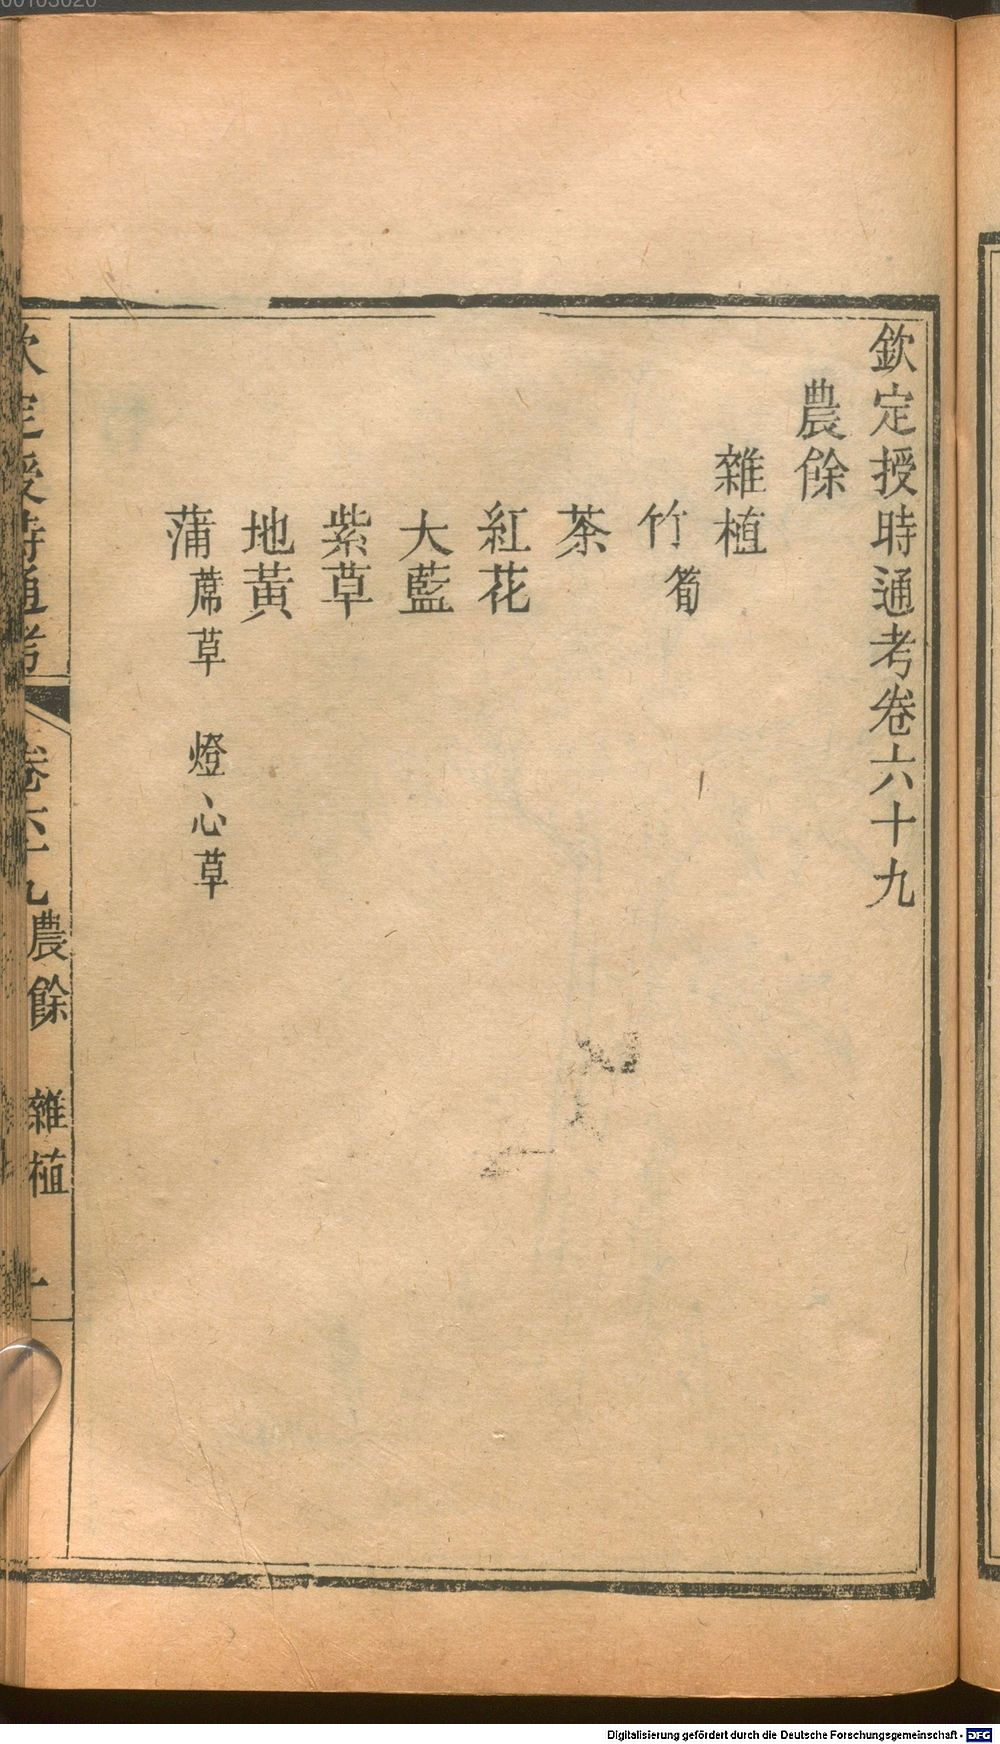 欽定授時通考卷六十九
農餘
雜植
竹 筍
茶
紅花
大藍
紫草
地黃
蒲 蓆草 燈心草
欽定授時通考 卷六十九 農餘 雜植 一
Digitalisierung gefördert durch die Deutsche Forschungsgemeinschaft - DFG